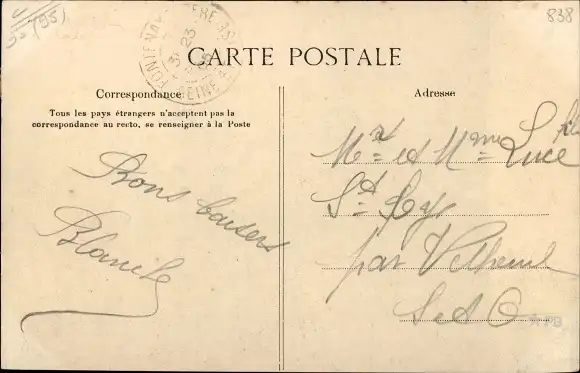 (95)
838
CARTE POSTALE
Correspondance
Tous les pays étrangers n'acceptent pas la
correspondance au recto, se renseigner à la Poste
Bons baisers
Blanche
Adresse
Mr et Mme Luce fils
St Cyr
par Vetheuil
S et O